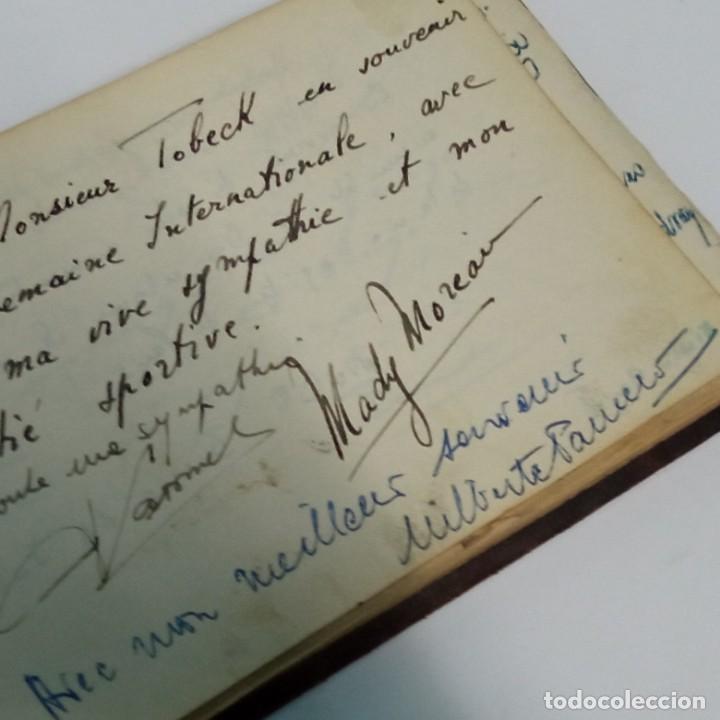 Monsieur Tobeck en souvenir
Semaine Internationale, avec
ma vive sympathie et mon
sportive.
Mady Moreau
toute ma sympathie
Avec mon meilleur souvenir
todocoleccion
todocoleccion.net